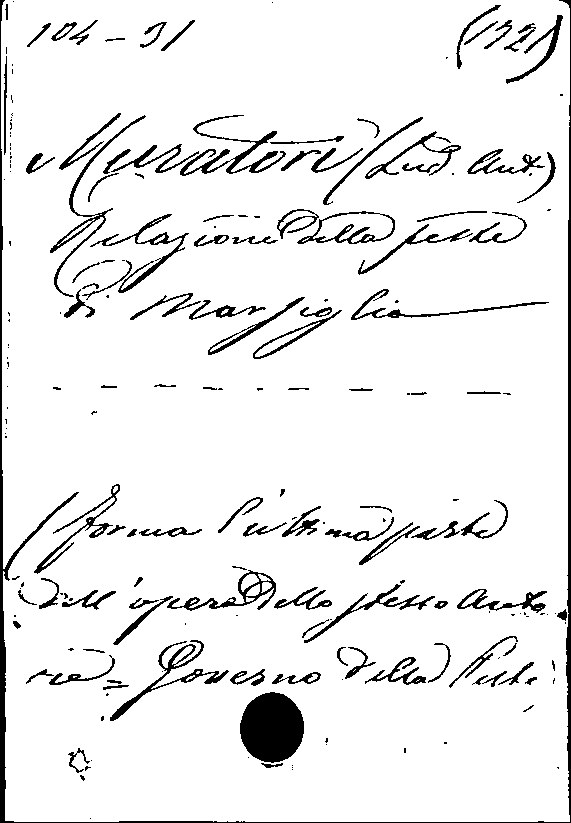 104-31 (1721)
Muratori (Lud. Ant.)
Relazione della peste
di Marsiglia
(forma l'ultima parte
dell'opera dello stesso Auto
re = Governo della Peste